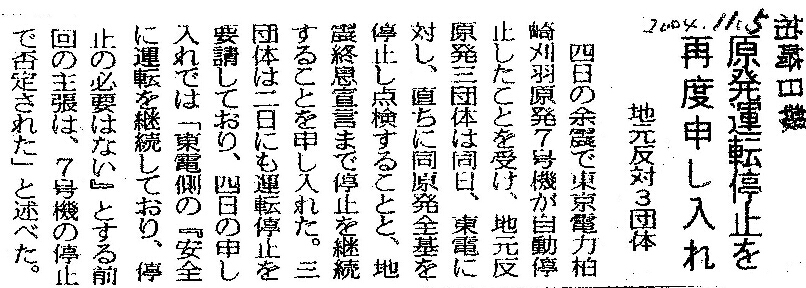 2004.11.5
原発運転停止を
再度申し入れ
地元反対3団体
四日の余震で東京電力柏
崎刈羽原発7号機が自動停
止したことを受け、地元反
原発三団体は同日、東電に
対し、直ちに同原発全基を
停止し点検することと、地
震終息宣言まで停止を継続
することを申し入れた。三
団体は二日にも運転停止を
要請しており、四日の申し
入れでは「東電側の『安全
に運転を継続しており、停
止の必要はない』とする前
回の主張は、7号機の停止
で否定された」と述べた。